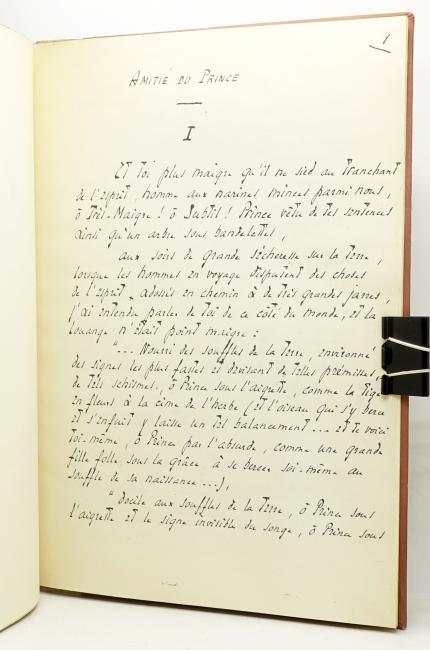 1
AMITIÉ DU PRINCE
I
Et toi plus maigre qu'il ne sied au tranchant
de l'esprit, homme aux narines minces parmi nous,
ô Très-Maigre! ô Subtil! Prince vêtu de tes sentences
ainsi qu'un arbre sous bandelettes,
aux soirs de grande sécheresse sur la terre,
lorsque les hommes en voyage disputent des choses
de l'esprit adossés en chemin à de très grandes jarres,
j'ai entendu parler de toi de ce côté du monde, et la
louange n'était point maigre :
"... Nourri des souffles de la terre, environné
des signes les plus fastes et devisant de telles prémisses,
de tels schismes, ô Prince sous l'aigrette, comme la tige
en fleurs à la cime de l'herbe (et l'oiseau qui s'y berce
et s'enfuit y laisse un tel balancement... et te voici
toi-même, ô Prince par l'absurde, comme une grande
fille folle sous la grâce à se bercer soi-même au
souffle de sa naissance...),
"Docile aux souffles de la terre, ô Prince sous
l'aigrette et le signe invisible du songe, ô Prince sous